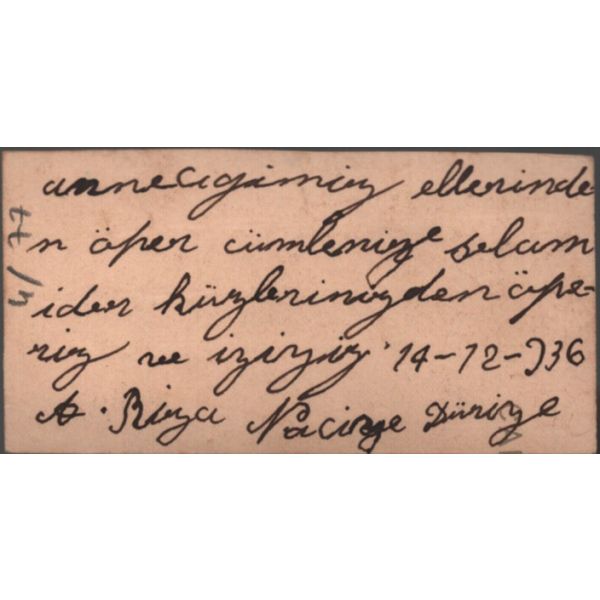 annecigimiz ellerinde-
n öper cümlenize selam
ider küzlerinizden öpe-
riz ve iziziz 14-12-936
A. Riza Naciye Düriye
4/77